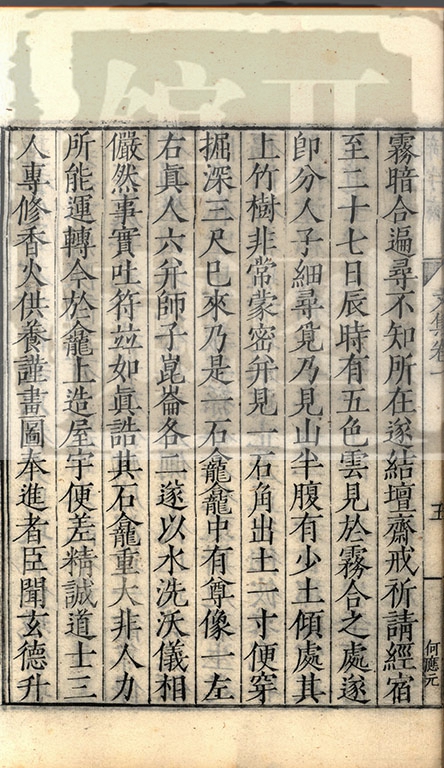 霧暗合遍尋不知所在遂結壇齋戒祈請經宿
至二十七日辰時有五色雲見於霧合之處遂
卽分人子細尋覓乃見山半腹有少土傾處其
上竹樹非常蒙密并見一石角出土一寸便穿
掘深三尺已來乃是一石龕龕中有尊像一左
右眞人六并師子崑崙各二遂以水洗沃儀相
儼然事實吐符並如眞誥其石龕重大非人力
所能運轉今於龕上造屋宇便差精誠道士三
人專修香火供養謹畫圖奉進者臣聞玄德升
五
何應元